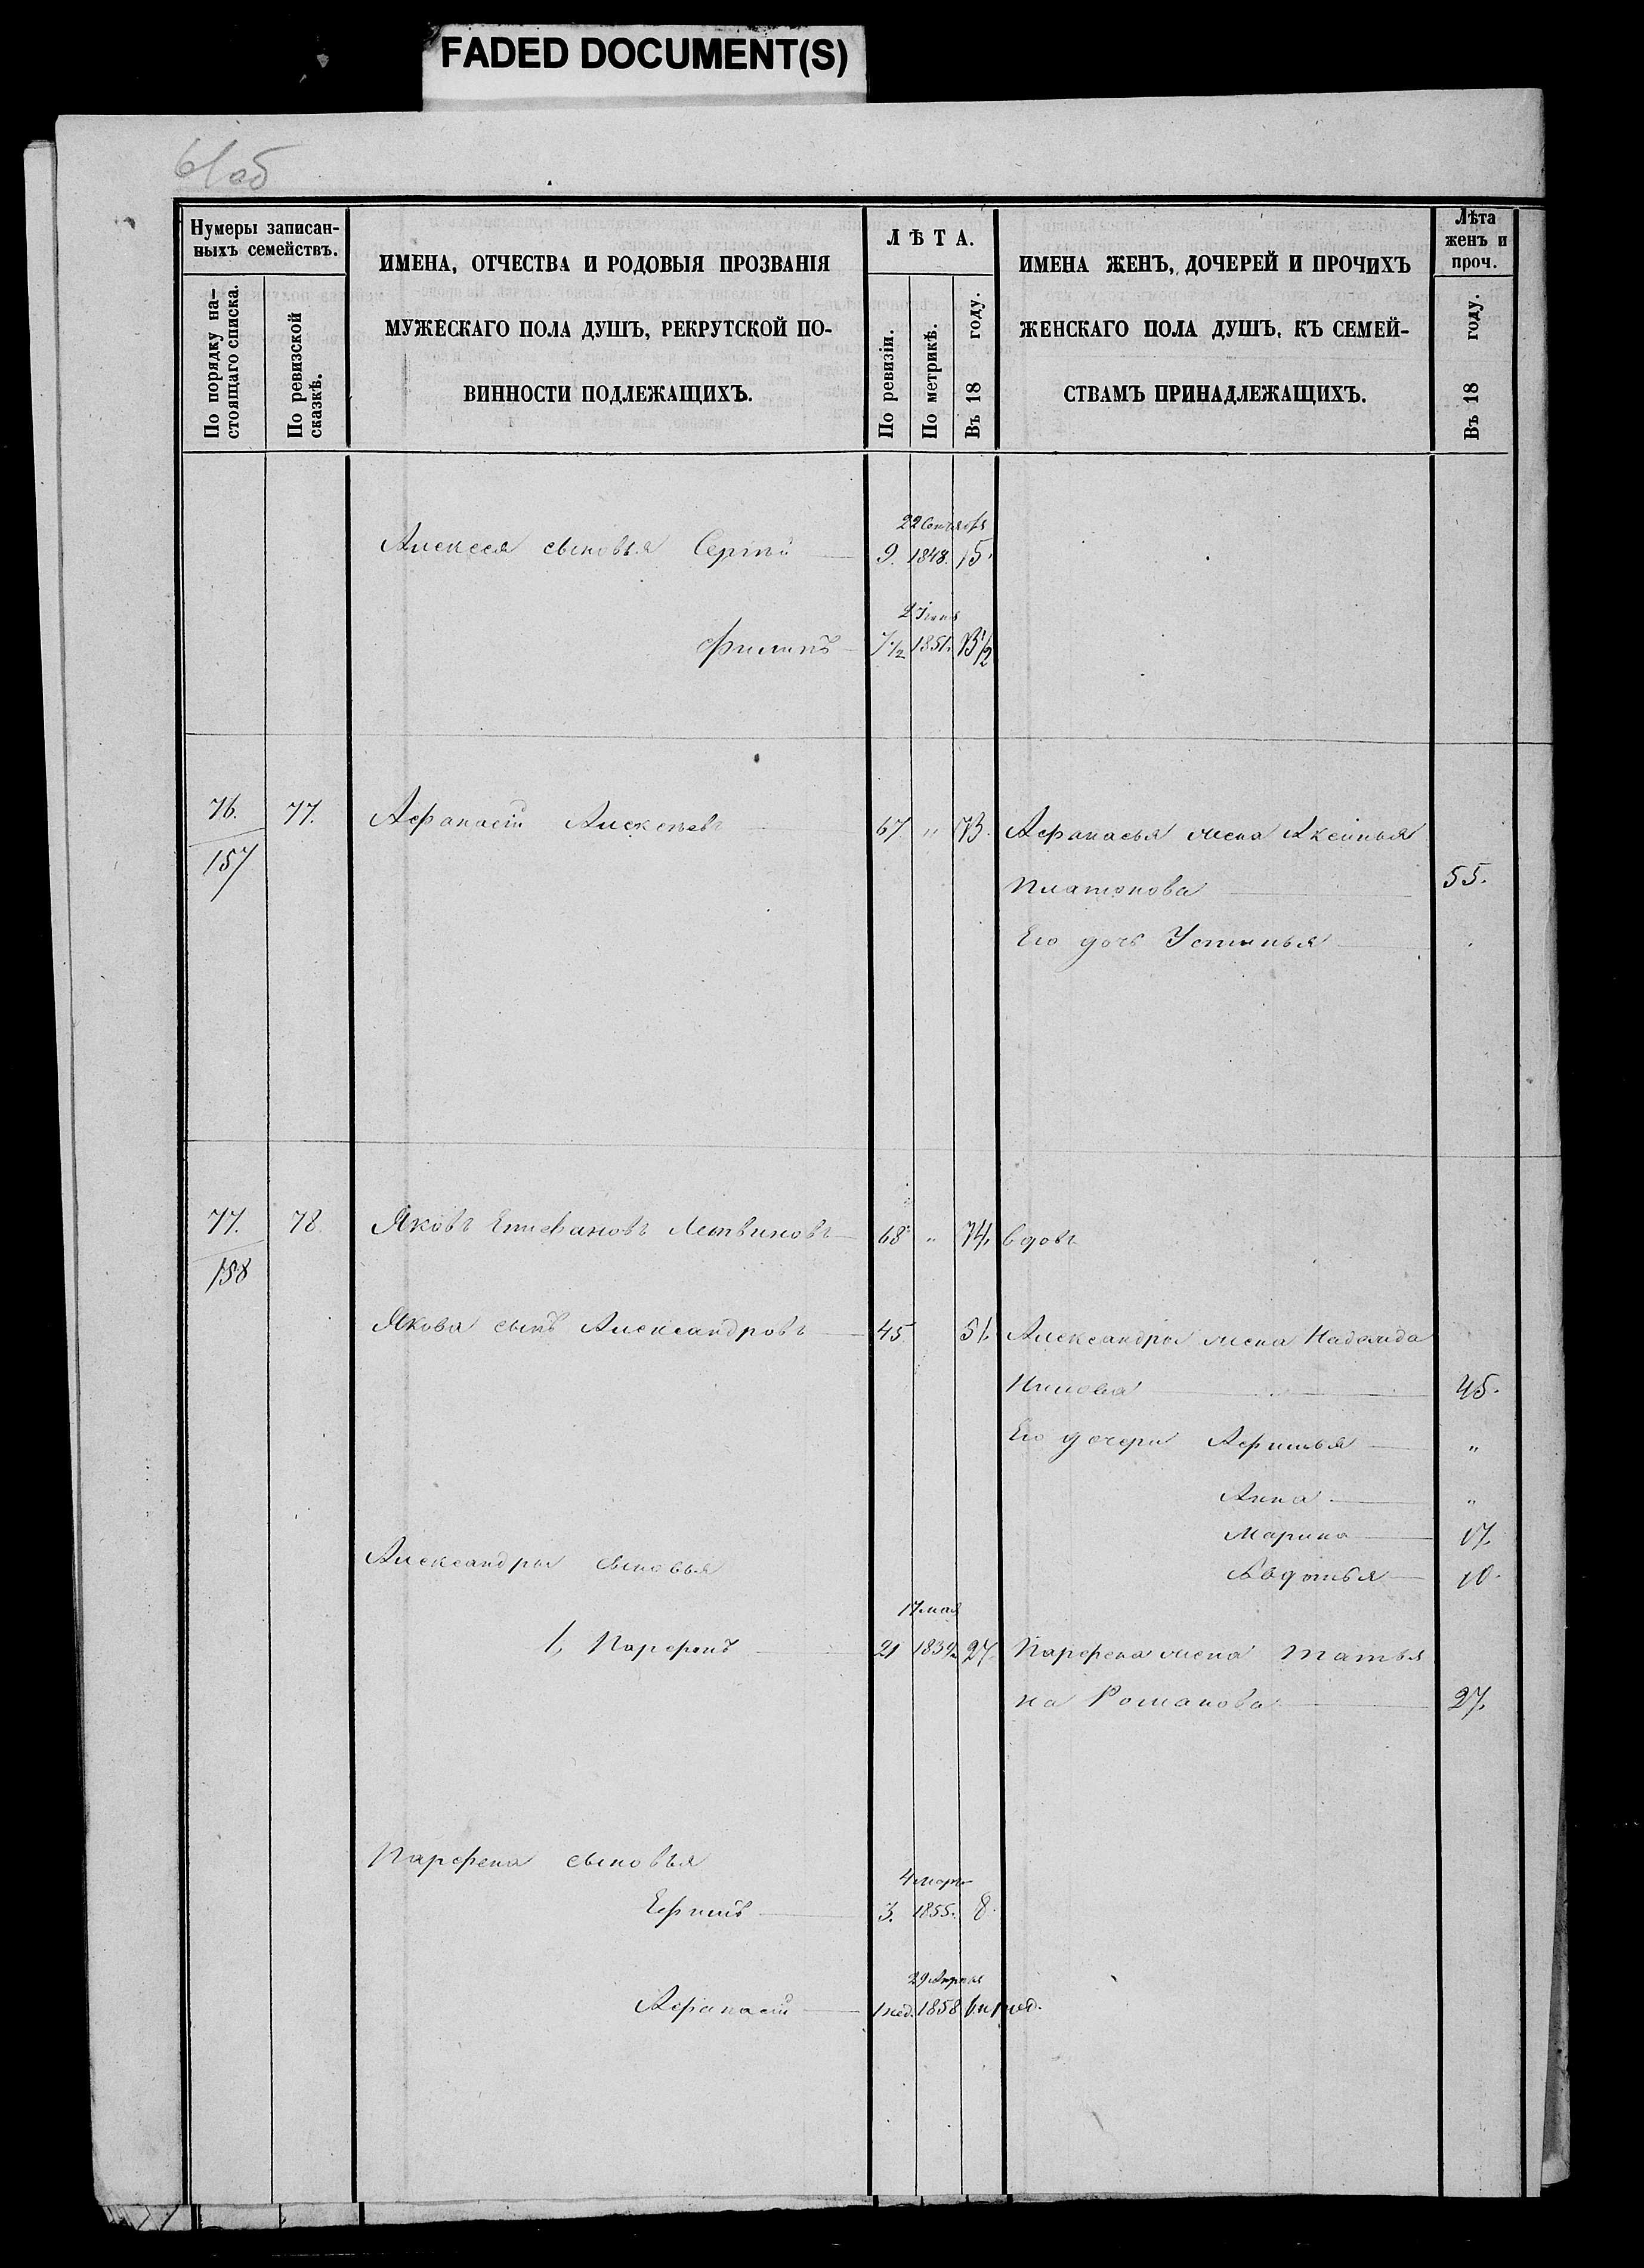 FADED DOCUMENT(S)
61 об
Нумеры записан-
ныхъ семействъ.
По порядку на-
стоящаго списка.
По ревизской
сказкѣ.
ИМЕНА, ОТЧЕСТВА И РОДОВЫЯ ПРОЗВАНІЯ
МУЖЕСКАГО ПОЛА ДУШЪ, РЕКРУТСКОЙ ПО-
ВИННОСТИ ПОДЛЕЖАЩИХЪ.
ЛѢТА.
По ревизіи.
По метрикѣ.
Въ 18 году.
ИМЕНА ЖЕНЪ, ДОЧЕРЕЙ И ПРОЧИХЪ
ЖЕНСКАГО ПОЛА ДУШЪ, КЪ СЕМЕЙ-
СТВАМЪ ПРИНАДЛЕЖАЩИХЪ.
Лѣта
женъ и
проч.
Въ 18 году.
22 Сентября
Алексея сыновья Сергій 9. 1848. 15.
Филипъ 7 1/2 1851. 13 1/2
76. 77. Афанасій Алексѣевъ 67 " 73. Афанасья жена Аксинья
157
Платонова 55.
Его дочь Устинья
77. 78. Яковъ Епифановъ Литвиновъ 68 " 74. вдовъ
158
Якова сынъ Александровъ 45 51. Александры жена Надежда
45.
Его дочери Афимья "
Анна "
Марина 17.
Александры сыновья
Авдотья 10.
17 мая
1, Парфенъ 21 27 Парфена жена Татья
на Романова 27.
Парфена сыновья
4 марта
Ефимъ 3. 1855. 8.
29 Апреля
Афанасій 1 нед. 1858